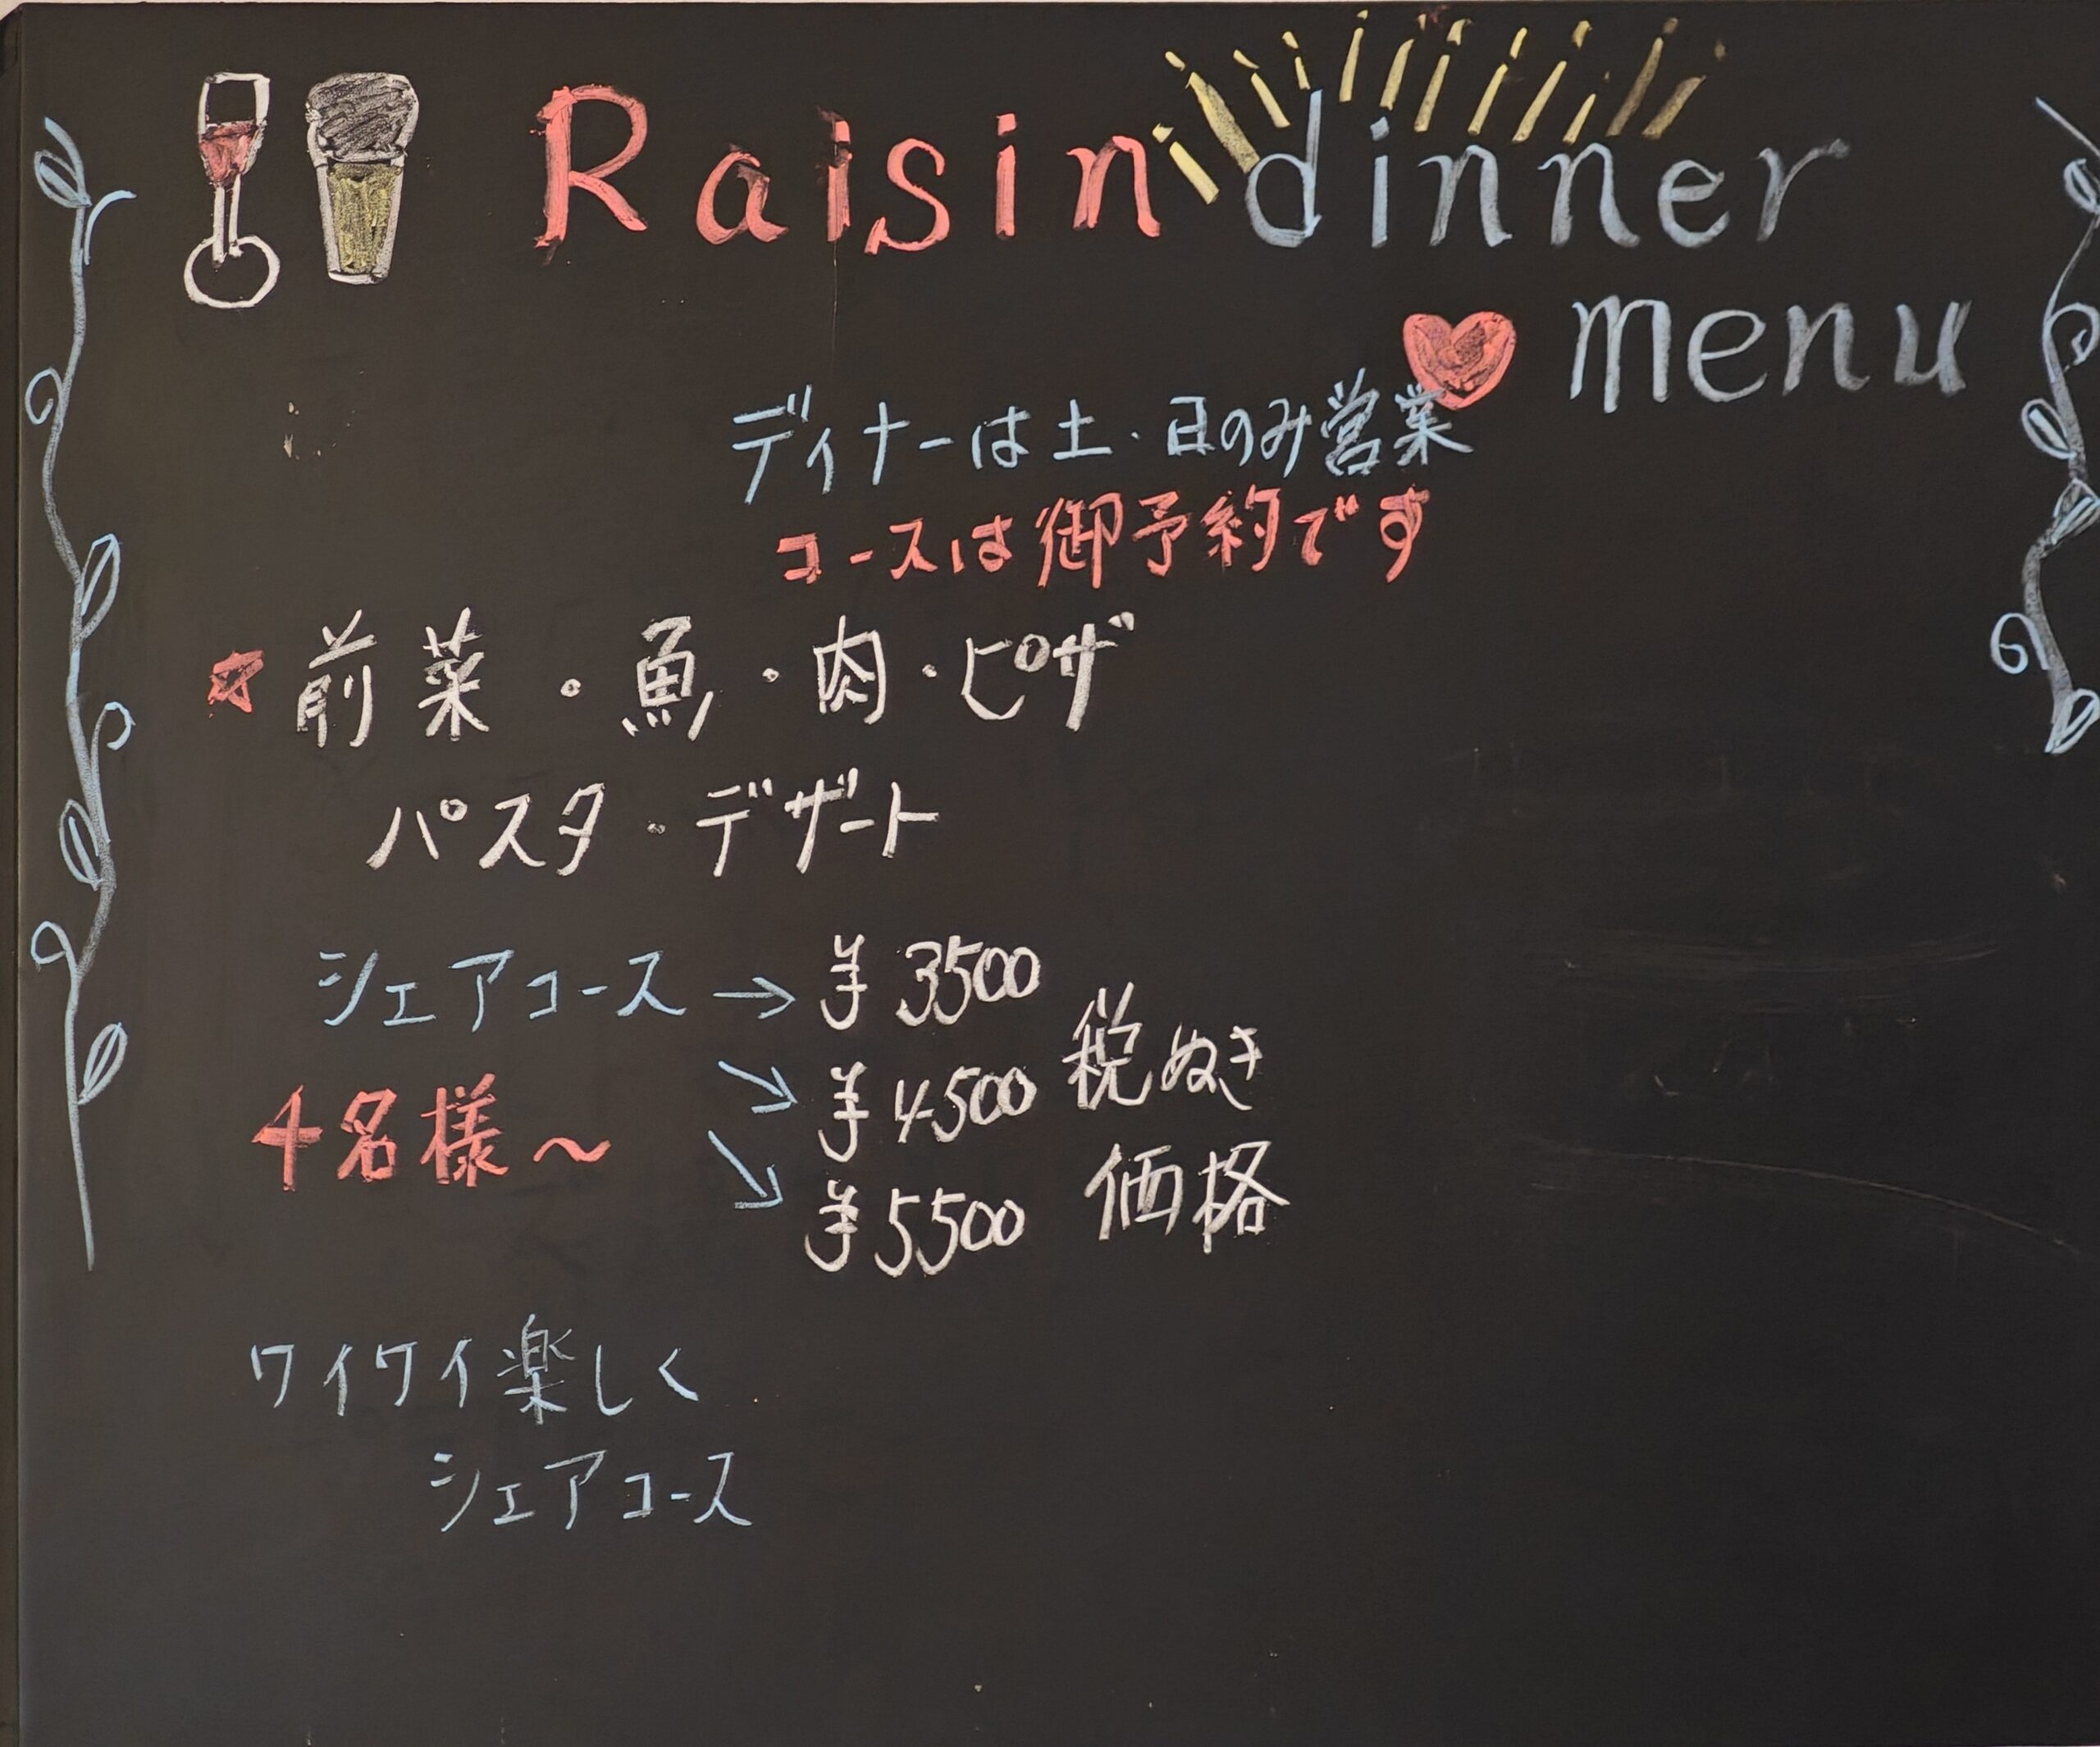 Raisin dinner
menu
ディナーは土・日のみ営業
コースは御予約です
☆前菜・魚・肉・ピザ
パスタ・デザート
シェアコース→¥3500
↘¥4500 税ぬき
4名様〜
↘¥5500 価格
ワイワイ楽しく
シェアコース